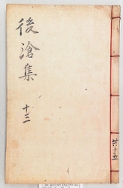 後滄集
十三